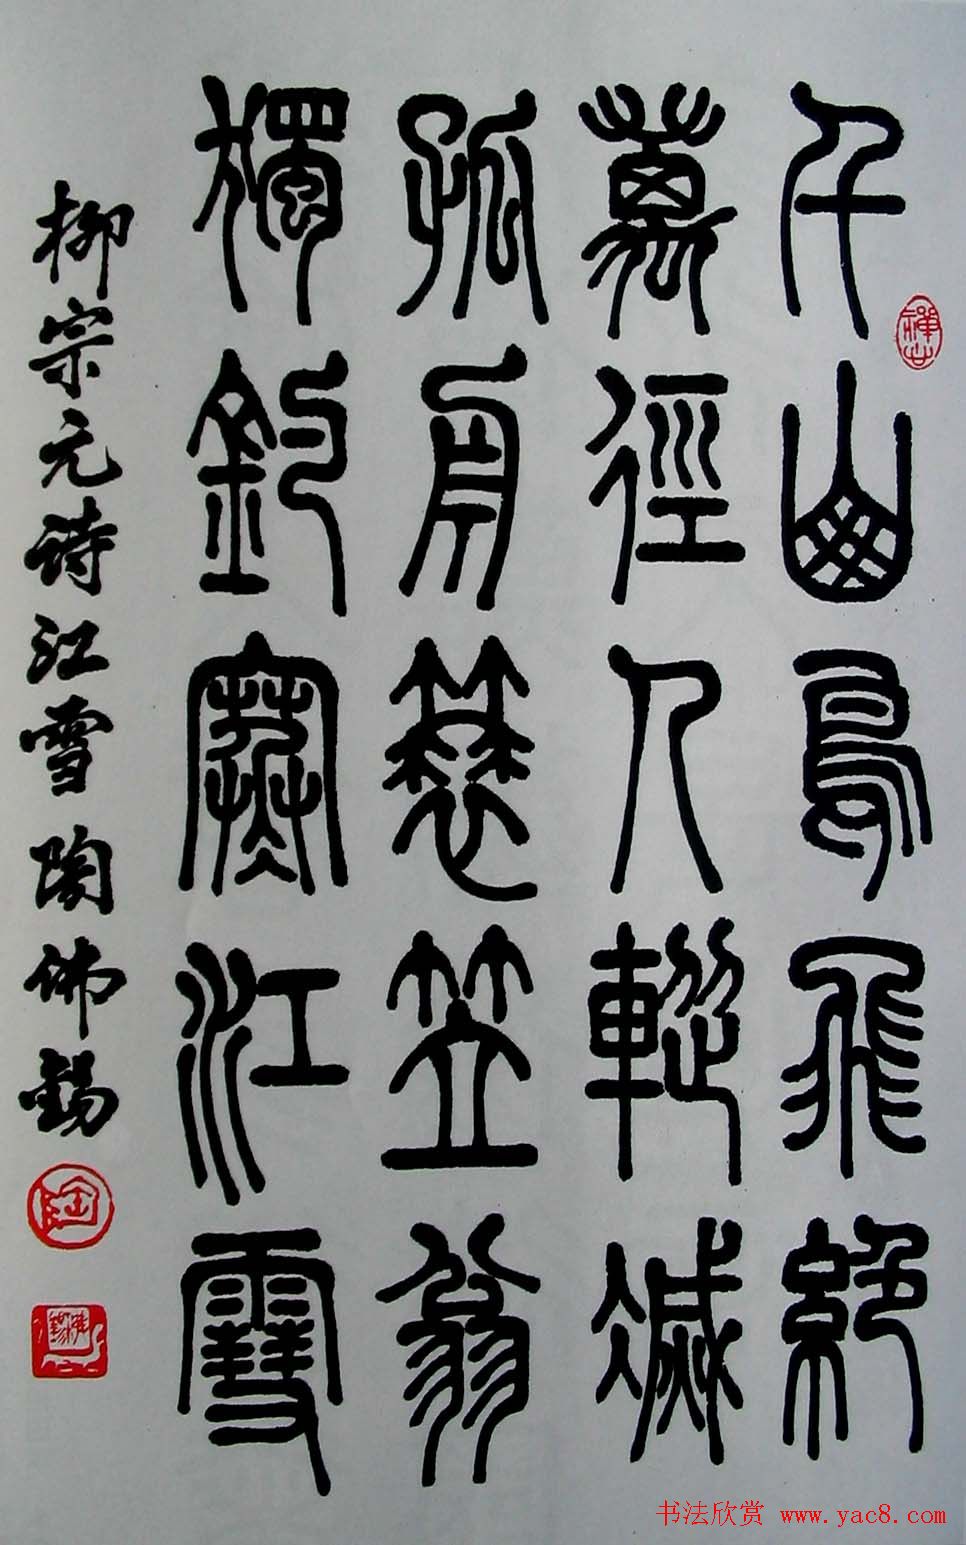 千山鳥飛絕
萬徑人蹤滅
孤舟簑笠翁
獨釣寒江雪
柳宗元诗江雪 陶佛錫
陶
书法欣赏 www.yac8.com